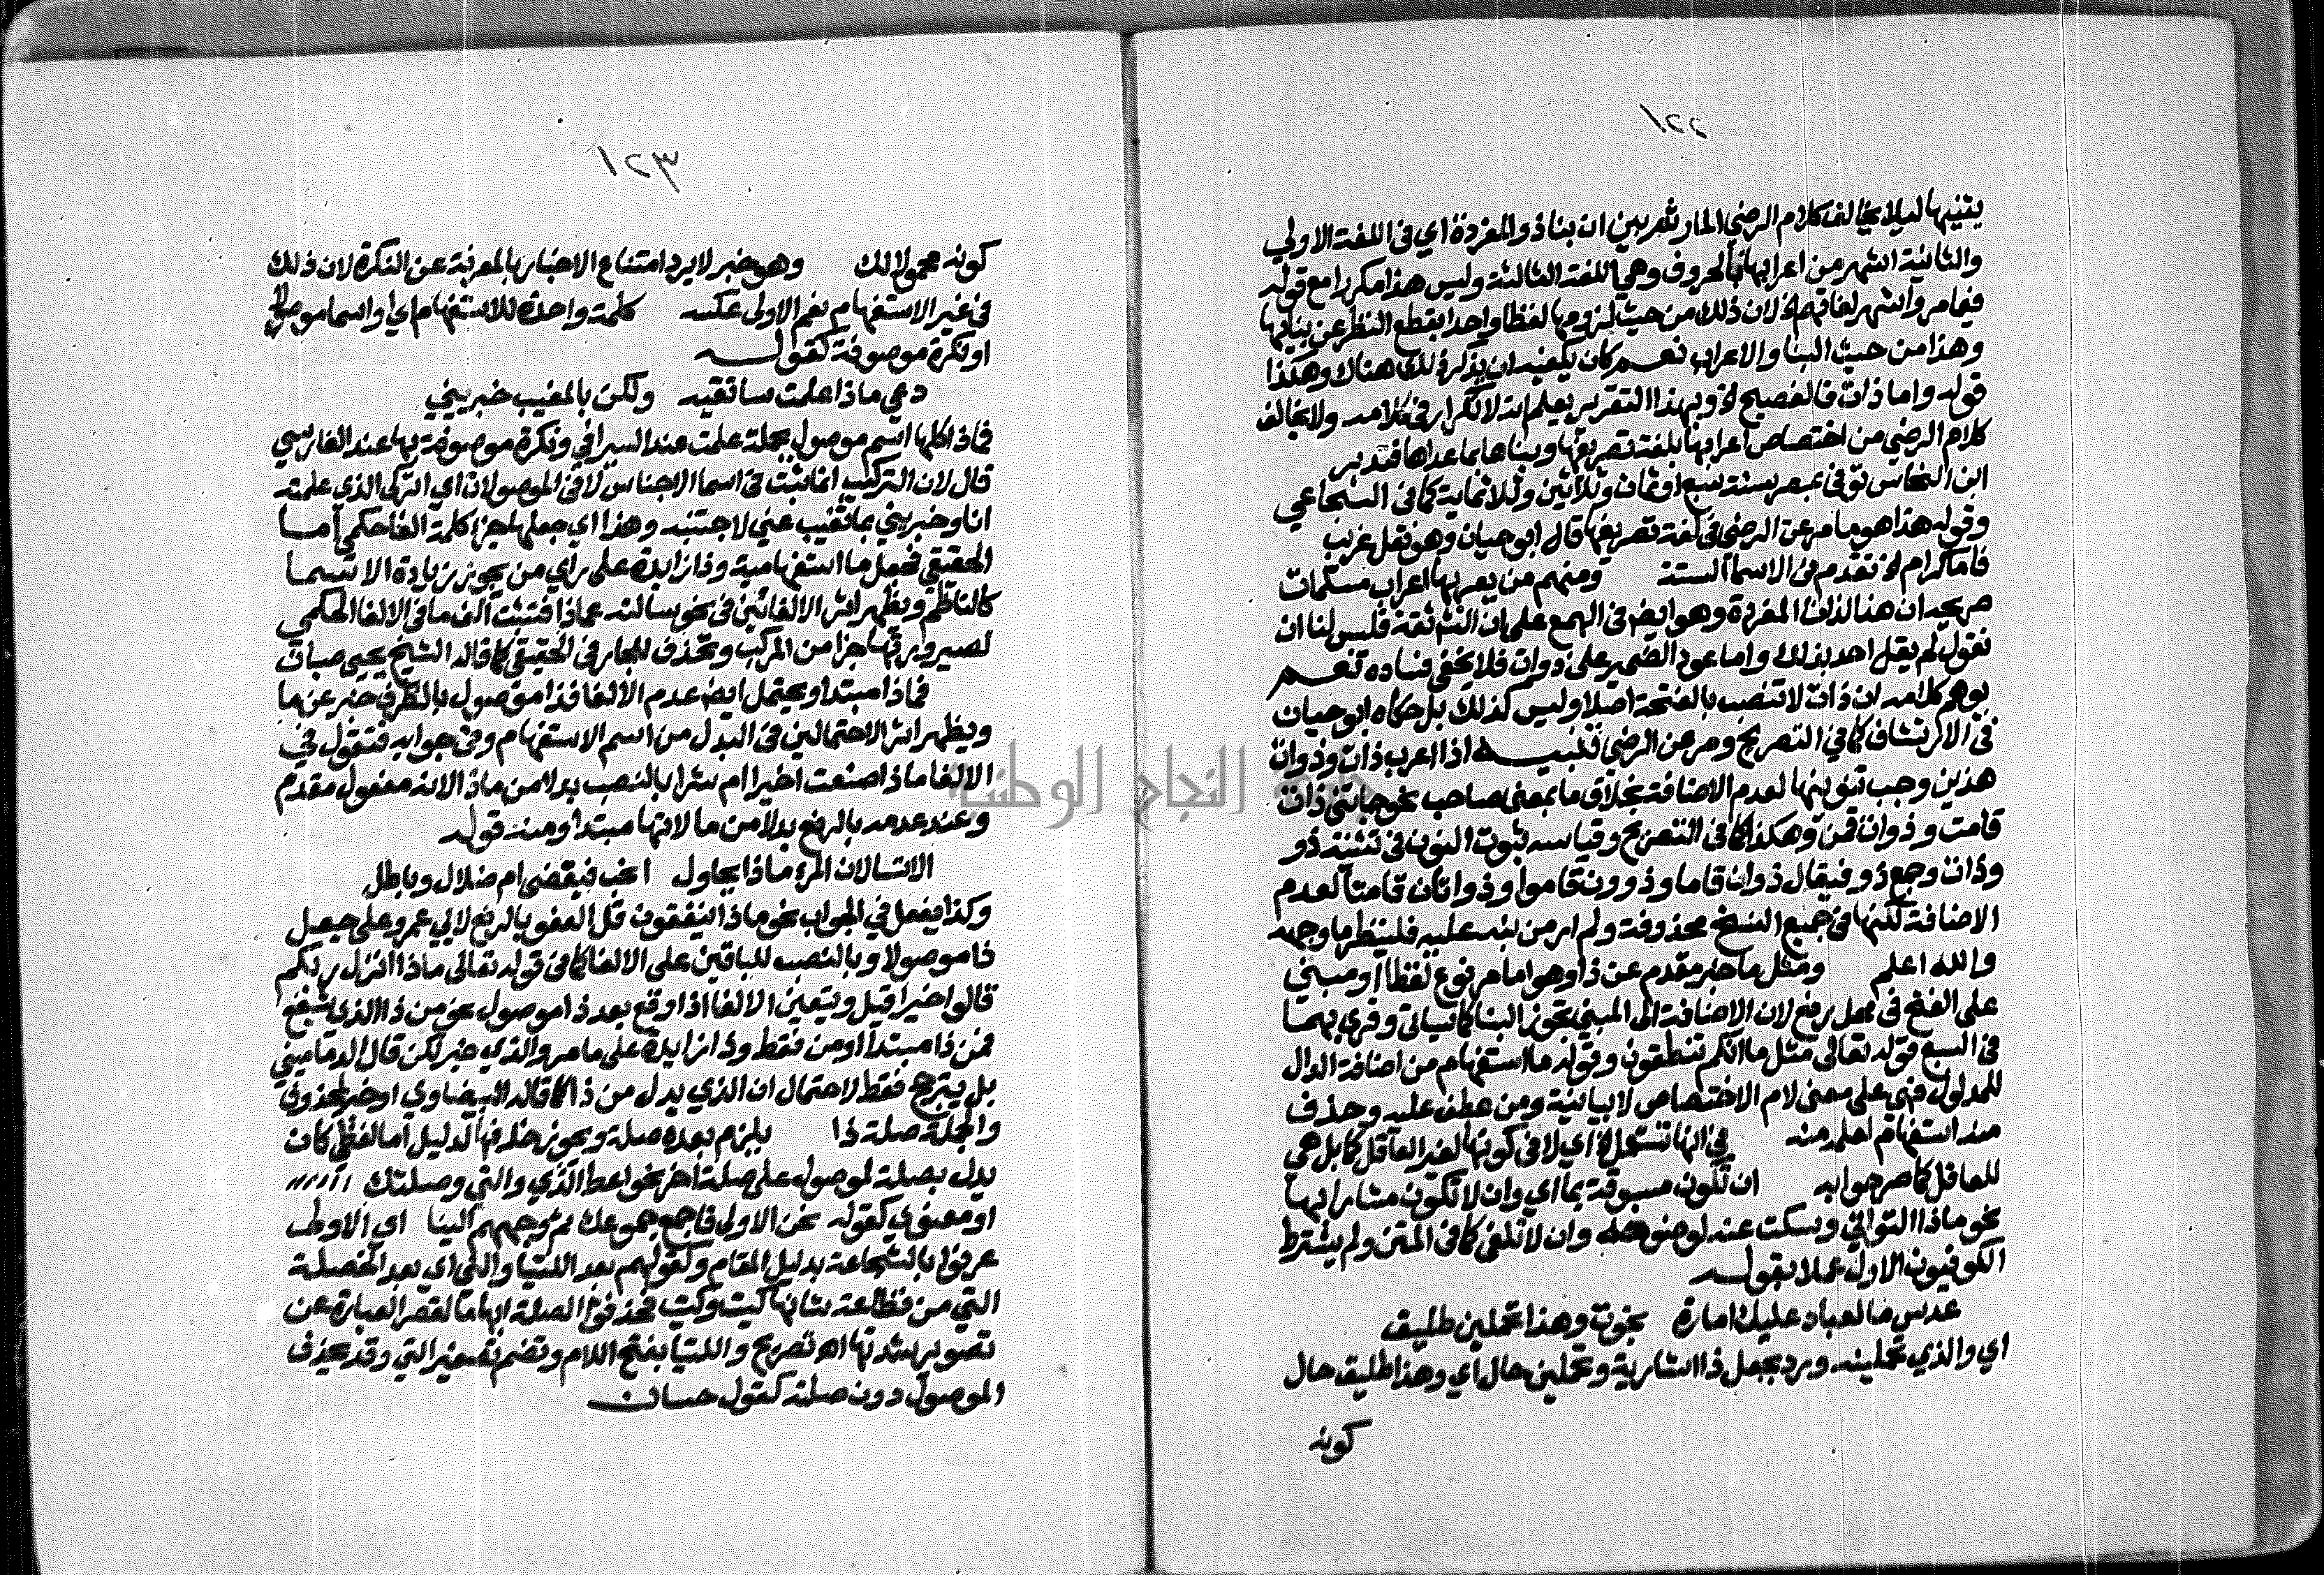 ١٢٢
يثنيها ليلا يخالف كلام الرضي المار ثم بين ان بنا ذو المفردة اي في اللغة الاولي
والثانية اشهر من اعرابها بالحروف وهي اللغة الثالثة وليس هذا مكررا مع قوله
فيما مر واشهر لغاتهم لان ذلك من حيث لزومها لفظا واحدا بقطع النظر عن بنايها
وهذا من حيث البنا والاعراب نعم كان يكفيه ان يذكر ذلك هناك وهكذا
قوله واما ذات فالفصيح الخ وبهذا التقرير يعلم انه لا تكرار في كلامه ولا يخالف
كلام الرضي من اختصاص اعرابها بلغة تصريفها وبناها بما عداها فتدبر
ابن النحاس توفي بمصر سنة سبع او ثمان وثلاثين وثلاثماية كما في السجاعي
وقوله هذا هو ما مر عن الرضي في لغة تصريفها قال ابو حيان وهو نقل غريب
فاما كرام الخ تقدم في الاسما الستة ومنهم من يعربها اعراب مسلمات
صريحه ان هنا لذات المفردة وهو ايضا في الهمع على ان النثر ثقة فليس لنا ان
نقول لم يقل احد بذلك واما عود الضمير على ذوات فلا يخفى فساده نعم
يوهم كلامه ان ذات لا تنصب بالفتحة اصلا وليس كذلك بل حكاه ابو حيان
في الارتشاف كما في التصريح ومر عن الرضي تنبيه اذا اعرب ذات وذوات
هذين وجب تنوينها لعدم الاضافة بخلاف ما بمعنى صاحب نحو جاتني ذات
قامت وذوات قمن وهكذا كما في التصريح وقياسه ثبوت النون في تثنية ذو
وذات وجمع ذو فيقال ذوان قاما وذوون قاموا وذواتان قامتا لعدم
الاضافة لكنها في جميع النسخ محذوفة ولم ار من نبه عليه فلينظر ما وجهه
والله اعلم ومثل ما خبر مقدم عن ذا وهو اما مرفوع لفظا او مبني
على الفتح في محل رفع لان الاضافة الى المبني تجوز البنا كما سياتي وقري بهما
في السبع قوله تعالى مثل ما انكم تنطقون وقوله ما استفهام من اضافة الدال
للمدلول فهي على معنى لام الاختصاص لا بيانية ومن عطف عليه وحذف
منه استفهام لعلمه منه في انها تستعمل الخ اي لا في كونها لغير العاقل كما بل هي
للعاقل كما مر جوابه ان تكون مسبوقة بما اي وان لا تكون مشارا بها
نحو ماذا التواني وسكت عنه لوضوحه وان لا تلغى كما في المتن ولم يشترط
الكوفيون الاول عملا بقوله
عدس ما لعباد عليك امارة نجوت وهذا تحملين طليق
اي والذي تحملينه ورد بجعل ذا اشارية وتحملين حال اي وهذا طليق حال
كونه
١٢٣
كونه محمولا لك وهو خبر لا يرد امتناع الاخبار بالمعرفة عن النكرة لان ذلك
في غير الاستفهام نعم الاولى عكسه كلمة واحدة للاستفهام اي او اسما موصولا
او نكرة موصوفة كقوله
دعي ماذا علمت ساتقيه ولكن بالمغيب خبريني
فماذا كلها اسم موصول بجملة علمت عند السيرافي ونكرة موصوفة بها عند الفارسي
قال لان التركيب انما ثبت في اسما الاجناس لا في الموصولات اي اتركي الذي علمته
انا وخبريني بما تغيب عني لاجتنبه وهذا اي جعلها جزا كلمة الغا حكمي اما
الحقيقي فجعل ما استفهامية وذا زايدة على راي من يجوز زيادة الاسما
كالناظم ويظهر اثر الالغائين في نحو سالته عماذا فتثبت الف ما في الالغا الحكمي
لصيرورتها جزا من المركب وتحذف للجار في الحقيقي كما قاله الشيخ يحيى صبان
فماذا مبتدا ويحتمل ايضا عدم الالغا فذا موصول بالظرف خبر عن ما
ويظهر اثر الاحتمالين في البدل من اسم الاستفهام وفي جوابه فتقول في
الالغا ماذا صنعت اخيرا ام شرا بالنصب بدلا من ماذا لانه مفعول مقدم
وعند عدمه بالرفع بدلا من ما لانها مبتدا ومنه قوله
الا تسالان المرء ماذا يحاول انحب فيقضى ام ضلال وباطل
وكذا يفعل في الجواب نحو ماذا ينفقون قل العفو بالرفع لابي عمرو على جعل
ذا موصولا وبالنصب للباقين على الالغا كما في قوله تعالى ماذا انزل ربكم
قالوا خيرا قيل ويتعين الالغا اذا وقع بعد ذا موصول نحو من ذا الذي يشفع
فمن ذا مبتدا او من فقط وذا زايدة على ما مر والذي خبر لكن قال الدماميني
بل يترجح فقط لاحتمال ان الذي بدل من ذا كما قاله البيضاوي او خبر لمحذوف
والجملة صلة ذا يلزم بعده صلة ويجوز حذفها لدليل اما لفظي كان
يدل بصلة لموصول على صلة اخر نحو اعط الذي والتي وصلتك
او معنوي كقوله نحن الاولى فاجمع جموعك ثم وجههم الينا اي الاولى
عرفوا بالشجاعة بدليل المقام وكقولهم بعد اللتيا والتي اي بعد الخصلة
التي من فظاعة شانها كيت وكيت فحذفوا الصلة ايهاما لقصر العبارة عن
تصوير شدتها اه تصريح واللتيا بفتح اللام وتضم تصغير التي وقد يحذف
الموصول دون صلته كقول حسان